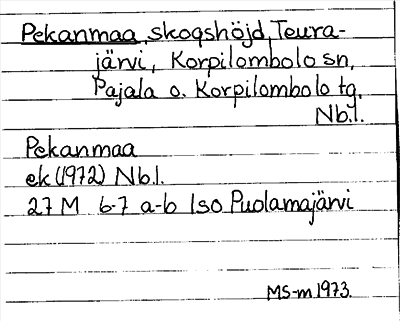 Pekanmaa, skogshöjd, Teura-
järvi, Korpilombolo sn,
Pajala o. Korpilombolo tg.
Nb.l.
Pekanmaa
ek (1972) Nb.l.
27 M 6-7 a-b Iso Puolamajärvi
MS-m 1973.